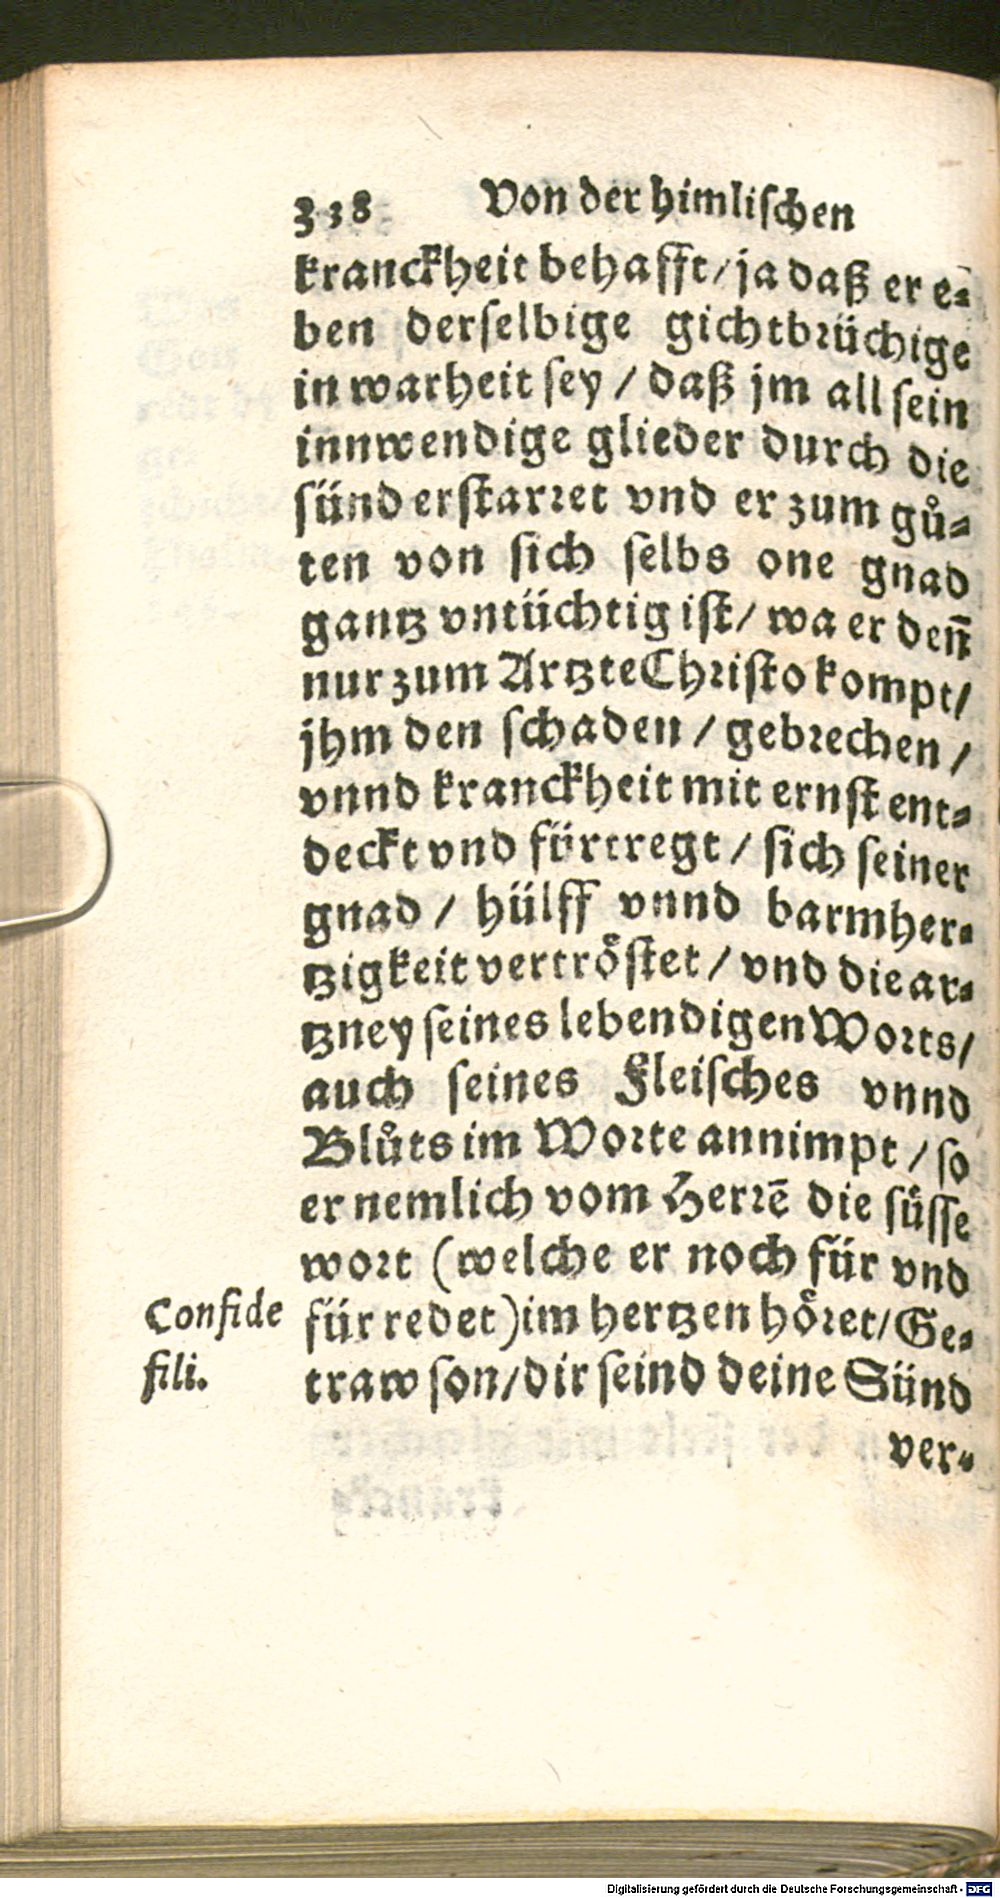 338 Von der himlischen
kranckheit behafft/ ja daß er e⸗
ben derselbige gichtbrüchige
in warheit sey / daß jm all sein
innwendige glieder durch die
sünd erstarret vnd er zum gů⸗
ten von sich selbs one gnad
gantz vntüchtig ist/ wa er deñ
nur zum Artzte Christo kompt/
jhm den schaden / gebrechen /
vnnd kranckheit mit ernst ent⸗
deckt vnd fürtregt / sich seiner
gnad / hülff vnnd barmher⸗
tzigkeit vertröstet / vnd die ar⸗
tzney seines lebendigen Worts/
auch seines Fleisches vnnd
Blůts im Worte annimpt / so
er nemlich vom Herrē die süsse
wort (welche er noch für vnd
für redet) im hertzen höret/ Ge⸗
traw son/ dir seind deine Sünd
ver⸗
Confide
fili.
Digitalisierung gefördert durch die Deutsche Forschungsgemeinschaft - DFG